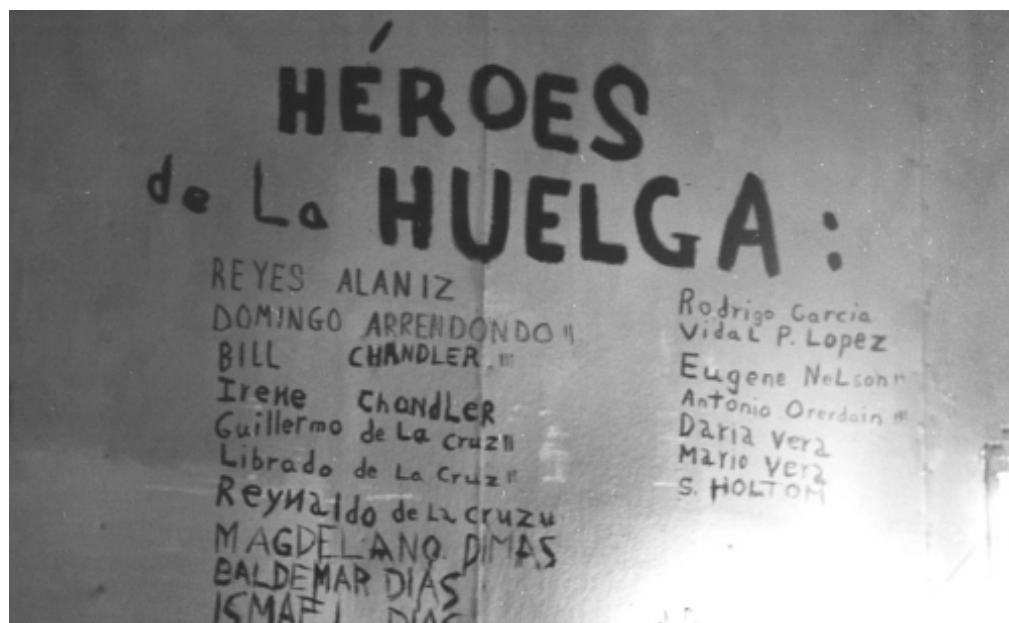 HÉROES
de La HUELGA:
REYES ALANIZ
DOMINGO ARRENDONDO "
BILL CHANDLER "'
Irene Chandler
Guillermo de La Cruz "
Librado de La Cruz "
Reynaldo de La Cruz "
MAGDELANO DIMAS
BALDEMAR DIAS
ISMAEL DIAS
Rodrigo Garcia
Vidal P. Lopez
Eugene Nelson "
Antonio Orerdain "'
Daria Vera
Mario Vera
S. HOLTOM